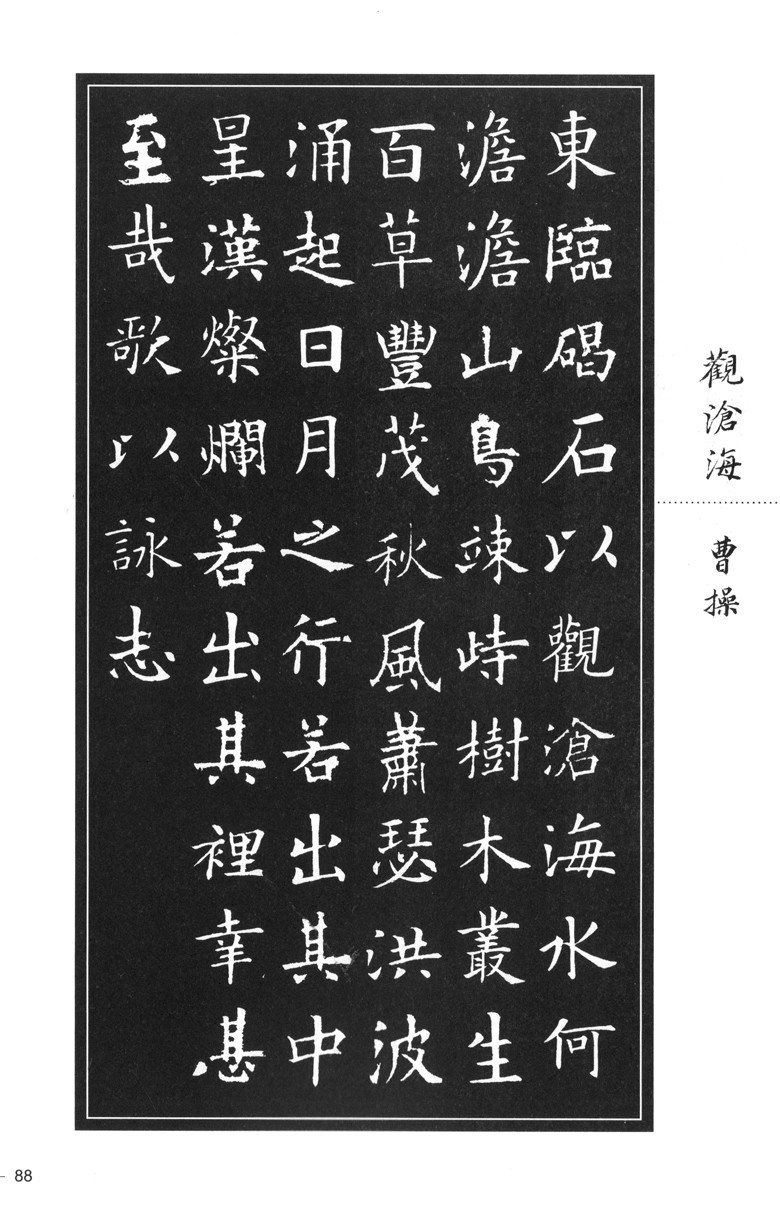 觀滄海
曹操
東臨碣石以觀滄海水何
澹澹山島竦峙樹木叢生
百草豐茂秋風蕭瑟洪波
涌起日月之行若出其中
星漢燦爛若出其裡幸甚
至哉歌以詠志
88